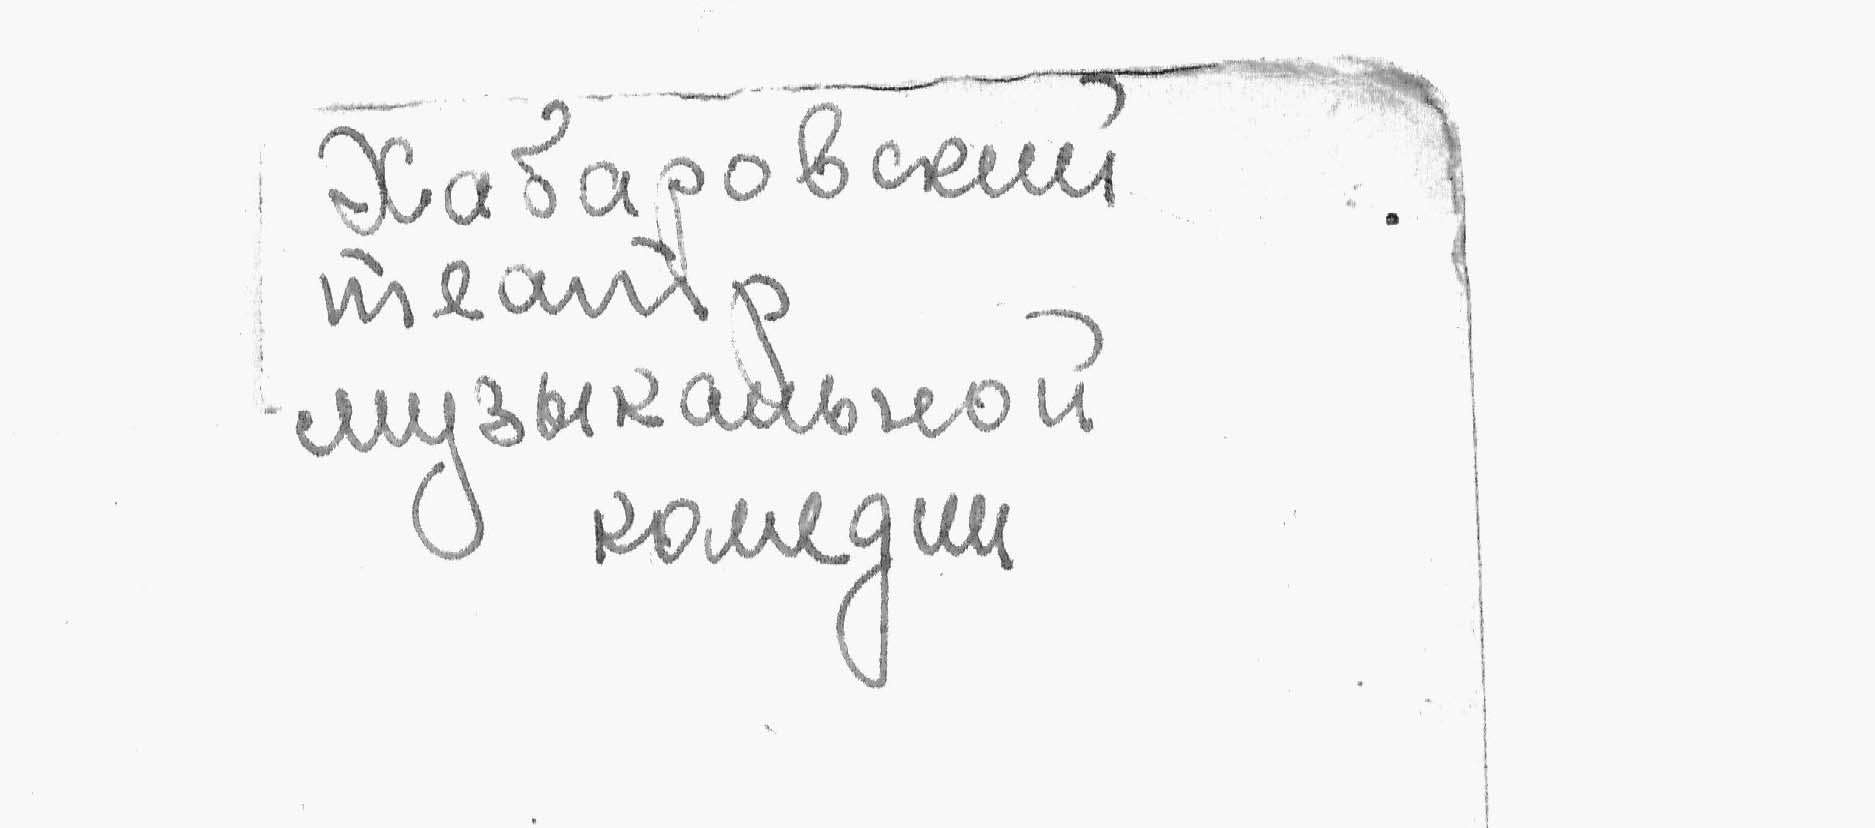 Хабаровский
театр
музыкальной
комедии